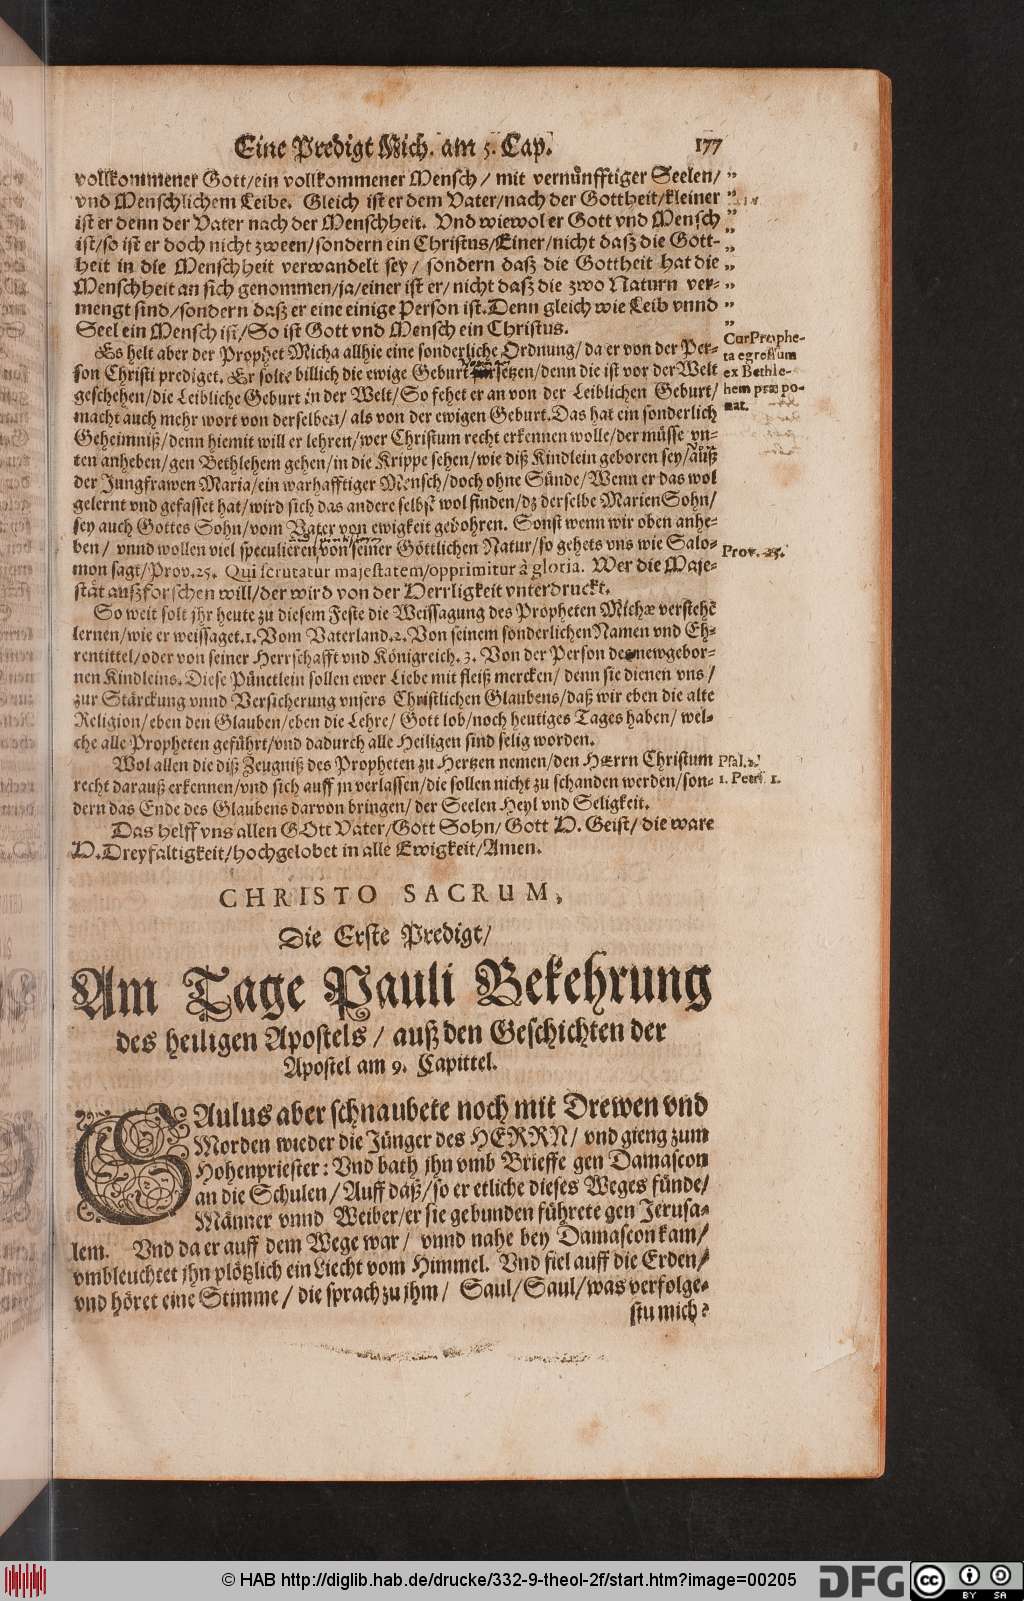 Eine Predigt Mich. am 5. Cap. 177
vollkommener Gott/ein vollkommener Mensch/ mit vernünfftiger Seelen/ „
vnd Menschlichem Leibe. Gleich ist er dem Vater/nach der Gottheit/kleiner „
ist er denn der Vater nach der Menschheit. Vnd wiewol er Gott vnd Mensch „
ist/so ist er doch nicht zween/sondern ein Christus/Einer/nicht daß die Gott- „
heit in die Menschheit verwandelt sey/ sondern daß die Gottheit hat die „
Menschheit an sich genommen/ja/einer ist er/ nicht daß die zwo Naturn ver- „
mengt sind/sondern daß er eine einige Person ist. Denn gleich wie Leib vnnd „
Seel ein Mensch ist/So ist Gott vnd Mensch ein Christus. „
Es helt aber der Prophet Micha allhie eine sonderliche Ordnung/da er von der Per-
son Christi prediget. Er solte billich die ewige Geburt setzen/denn die ist vor der Welt
geschehen/die Leibliche Geburt in der Welt/So fehet er an von der Leiblichen Geburt/
macht auch mehr wort von derselben/ als von der ewigen Geburt. Das hat ein sonderlich
Geheimniß/denn hiemit will er lehren/wer Christum recht erkennen wolle/der müsse vn-
ten anheben/gen Bethlehem gehen/in die Krippe sehen/wie diß Kindlein geboren sey/auß
der Jungfrawen Maria/ein warhafftiger Mensch/doch ohne Sünde/Wenn er das wol
gelernt vnd gefasset hat/wird sich das andere selbst wol finden/dz derselbe Marien Sohn/
sey auch Gottes Sohn/vom Vater von ewigkeit gebohren. Sonst wenn wir oben anhe-
ben/ vnnd wollen viel speculieren/von seiner Göttlichen Natur/so gehets vns wie Salo-
mon sagt/Prov.25. Qui scrutatur majestatem/opprimitur à gloria. Wer die Maje-
stät außforschen will/der wird von der Herrligkeit vnterdruckt.
CurProphe-
ta egressum
ex Bethle-
hem præpo-
nat.
Prov. 25.
So weit solt jhr heute zu diesem Feste die Weissagung des Propheten Michæ verstehē
lernen/wie er weissaget.1.Vom Vaterland.2.Von seinem sonderlichen Namen vnd Eh-
rentittel/oder von seiner Herrschafft vnd Königreich.3. Von der Person des newgebor-
nen Kindleins. Diese Pünctlein sollen ewer Liebe mit fleiß mercken/ denn sie dienen vns/
zur Stärckung vnnd Versicherung vnsers Christlichen Glaubens/daß wir eben die alte
Religion/eben den Glauben/eben die Lehre/ Gott lob/noch heutiges Tages haben/ wel-
che alle Propheten geführt/vnd dadurch alle Heiligen sind selig worden.
Wol allen die diß Zeugniß des Propheten zu Hertzen nemen/den HErrn Christum
recht darauß erkennen/vnd sich auff jn verlassen/die sollen nicht zu schanden werden/son-
dern das Ende des Glaubens darvon bringen/ der Seelen Heyl vnd Seligkeit.
Psal. 2.
1. Petr. 1.
Das helff vns allen GOtt Vater/Gott Sohn/ Gott H. Geist/ die ware
H. Dreyfaltigkeit/hochgelobet in alle Ewigkeit/Amen.
CHRISTO SACRUM,
Die Erste Predigt/
Am Tage Pauli Bekehrung
des heiligen Apostels / auß den Geschichten der
Apostel am 9. Capittel.
SAulus aber schnaubete noch mit Drewen vnd
Morden wieder die Jünger des HERRN/ vnd gieng zum
Hohenpriester: Vnd bath jhn vmb Brieffe gen Damascon
an die Schulen/ Auff daß/so er etliche dieses Weges fünde/
Männer vnnd Weiber/er sie gebunden führete gen Jerusa-
lem. Vnd da er auff dem Wege war/ vnnd nahe bey Damascon kam/
vmbleuchtet jhn plötzlich ein Liecht vom Himmel. Vnd fiel auff die Erden/
vnd höret eine Stimme/ die sprach zu jhm/ Saul/Saul/was verfolge-
stu mich?
© HAB http://diglib.hab.de/drucke/332-9-theol-2f/start.htm?image=00205
DFG
cc BY SA